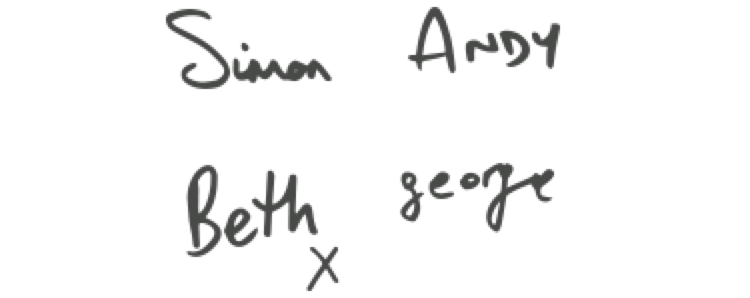 Simon ANDY
Beth george
x